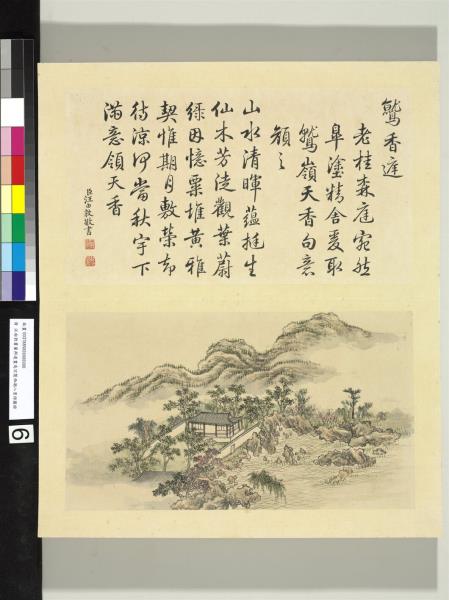 鷲香庭
老桂森庭宛然
皐塗精舍爰取
鷲嶺天香句意
額之
山水清暉蘊挺生
仙木芳徒觀葉蔚
綠因憶粟堆黃雅
契惟期月敷榮却
待涼何當秋宇下
滿意領天香
臣汪由敦敬書
6